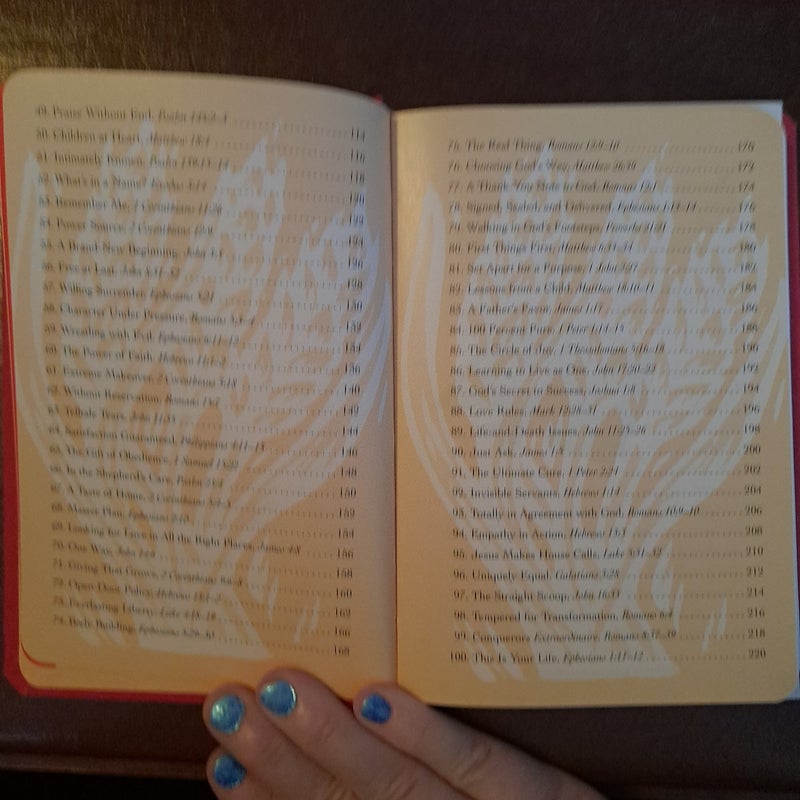 49. Praise Without End, Psalm 145:2-3 ..... 114
50. Children at Heart, Matthew 18:4 ..... 116
51. Intimately Known, Psalm 139:13-14 ..... 118
52. What's in a Name? Exodus 3:14
53. Remember Me, 1 Corinthians
54. Power Source, 2 Corinthians 12:9
55. A Brand-New Beginning, John 3:3
56. Free at Last, John
57. Willing Surrender, Ephesians 5:21
58. Character Under Pressure, Romans 5:3-4
59. Wrestling with Evil, Ephesians 6:11-12
60. The Power of Faith, Hebrews
61. Extreme Makeover, 2 Corinthians 3:18
62. Without Reservation, Romans 140
63. Telltale Tears, John 11:35 142
64. Satisfaction Guaranteed, Philippians 4:11-13 144
65. The Gift of Obedience, 1 Samuel 15:22 146
66. In the Shepherd's Care, Psalm 148
67. A Taste of Home, 2 Corinthians 150
68. Master Plan, Ephesians 2:10 152
69. Looking for Love in All the Right Places, James 4:8 154
70. One Way, John 14:6 156
71. Giving That Grows, 2 Corinthians 158
72. Open-Door Policy, Hebrews 13:1-2 160
73. Everlasting Liberty, Luke 4:18-19 162
74. Body Building, Ephesians 166
168
75. The Real Thing, Romans 12:9-10 170
76. Choosing God's Way, Matthew 26:39 172
77. A Thank-You Note to God, Romans 12:1 174
78. Signed, Sealed, and Delivered, Ephesians 1:13-14 176
79. Walking in God's Footsteps, Proverbs 21:21 178
80. First Things First, Matthew 6:31-34 180
81. Set Apart for a Purpose, 1 John 2:27 182
82. Lessons from a Child, Matthew 18:10-11 184
83. A Father's Favor, James 1:17 186
84. 100 Percent Pure, 1 Peter 1:14-15 188
85. The Circle of Joy, 1 Thessalonians 5:16-18 190
86. Learning to Live as One, John 17:20-22 192
87. God's Secret to Success, Joshua 1:8 194
88. Love Rules, Mark 12:28-31 196
89. Life-and-Death Issues, John 11:25-26 198
90. Just Ask, James 1:5 200
91. The Ultimate Cure, 1 Peter 2:24 202
92. Invisible Servants, Hebrews 1:14 204
93. Totally in Agreement with God, Romans 10:9-10 206
94. Empathy in Action, Hebrews 13:3 208
95. Jesus Makes House Calls, Luke 5:31-32 210
96. Uniquely Equal, Galatians 3:28 212
97. The Straight Scoop, John 16:33 214
98. Tempered for Transformation, Romans 6:4 216
99. Conquerors Extraordinaire, Romans 8:37-39 218
100. This Is Your Life, Ephesians 1:11-12 220